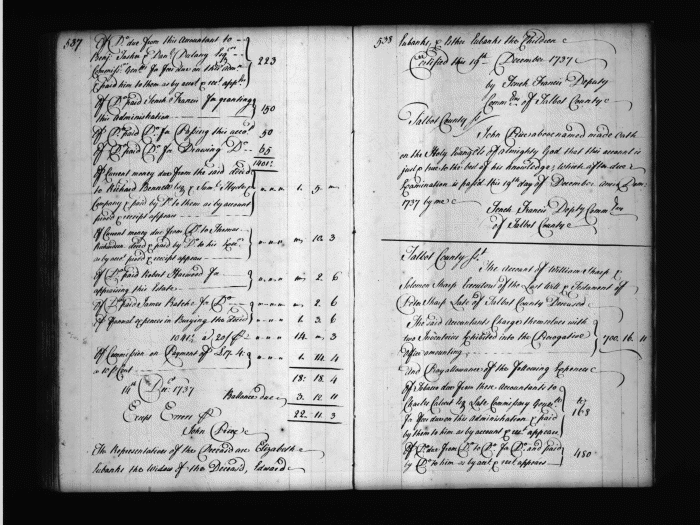 587
Of Do. due from this Accountant to
Benj. Tasker & Danl. Dulany Esqrs
Commiss. Genl. for Fees due on this adm
& paid him to them as by acct. & rect. appears 223
Of Do. paid Tench Francis for granting
this Administration 150
Of Do. paid Do. for Passing this acco. 50
Of Do. paid Do. for Drawing Do. 65
Of Current money due from the said deced
to Richard Bennett Esq & Saml. Hyde &
Company & paid by Do. to them as by account
proved & receipt appears 1. 5.
Of Current money due from Do. to Thomas
Richardson deced & paid by Do. to his Exec
as by acct. proved & receipt appears 10. 3
Of Do. paid Robert Harwood for
appraising this Estate 2. 6
Of Do. paid James Do. 2. 6
Of Funeral expences in Burying the deced 1. 3. 6
Of Commission on Payment of £17. 4.
a 10 P Cent 1. 14. 4
18: 18. 4
14th Decr. 1737
Ballance due 3. 12. 11
22. 11. 3
Errors
John
The Representatives of the Deceased are Elizabeth
Eubanks the Widow of the Deceased, Edward
538
Eubanks, & Esther Eubanks the Children
Certified this 19th December 1737
by Tench Francis Deputy
Comm of Talbot County
Talbot County ss.
John abovenamed made Oath
on the Holy Evangels of Almighty God that this account is
just & true to the best of his knowledge, which after due
Examination is passed this 19th day of December
1737 by me
Tench Francis Depty Comm
of Talbot County
Talbot County ss.
The Account of William Sharp &
Solomon Sharp Executors of the Last Will & Testament of
Peter Sharp Late of Talbot County Deceased
The said Accountants Charge themselves with
two Inventories Exhibited into the Prerogative
Office amounting 700. 16. 11
And Pray allowance of the following Expences
Of Tobacco due from these Accountants to
Charles Calvert Esq Late Commissary General
for Fees due on this Administration & paid
by them to him as by account & rect. appears 168
Of Do. due from Do. to Do. for Do. and paid
by Do. to him as by acct. & rect. appears 480